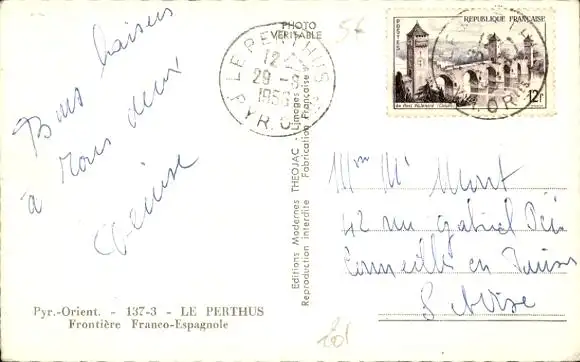 PHOTO
VÉRISABLE
56
POSTES
REPUBLIQUE FRANÇAISE
Le Pont Valentré (Cahors)
12F
LE PERTHUS
12
29 - 9
1956
PYR. OR
Bons baisers
à vous deux
Denise
Editions Modernes THEOJAC - Limoges
Reproduction interdite Fabrication Française
Mme Mr
42 rue Gabriel Péri
Cormeilles en Parisis
S et Oise
Pyr.-Orient. - 137-3 - LE PERTHUS
Frontière Franco-Espagnole